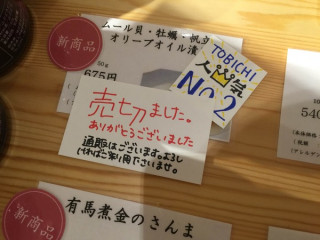 新商品
ムール貝・牡蠣・帆立
オリーブオイル漬
675円
TOBICHI
人気
No.2
売切ました。
ありがとうございました
通販はございます。よろし
ければご利用下さいませ。
540
新商品
有馬煮金のさんま